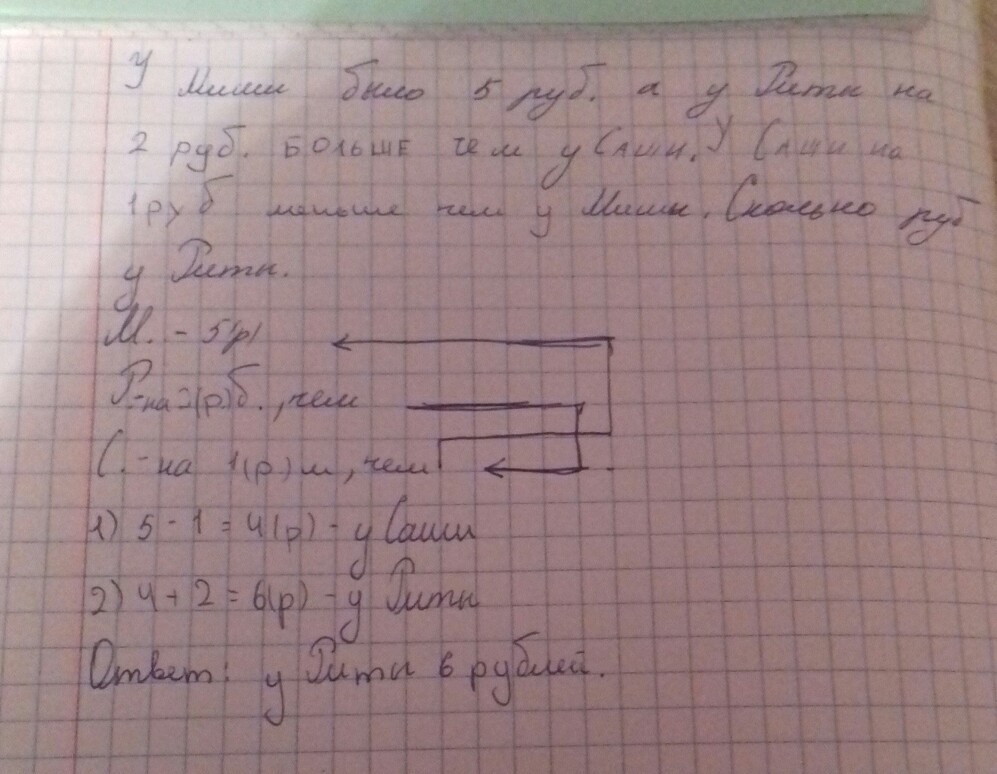 У Миши было 5 руб. а у Риты на
2 руб. БОЛЬШЕ чем у Саши. У Саши на
1 руб меньше чем у Миши. Сколько руб
у Риты.
М. - 5(р)
Р.-на 2(р)б., чем
С. - на 1(р) м, чем
1) 5 - 1 = 4(р) - у Саши
2) 4 + 2 = 6(р) - у Риты
Ответ: у Риты 6 рублей.